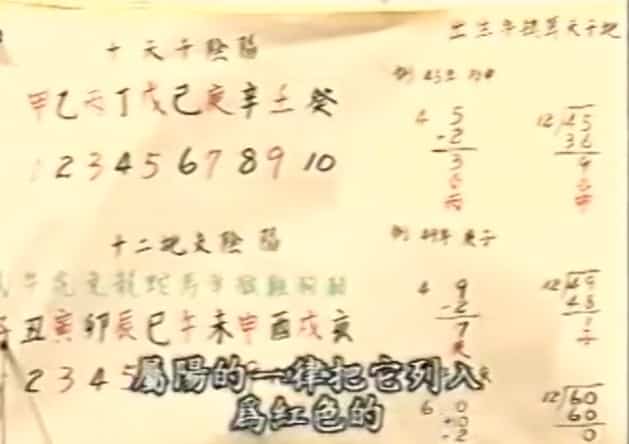 十天干陰陽
甲乙丙丁戊己庚辛壬癸
2 3 4 5 6 7 8 9 10
十二地支陰陽
牛虎兔龍蛇馬羊猴雞狗豬
丑寅卯辰巳午未申酉戌亥
2 3 4 5
出生年換算天干地
例 45年 丙申
4 5
-2
3
丙
12/45
36
9
申
例 49年 庚子
4 9
-2
7
12/49
48
1
子
6 0
+0
-2
12/60
60
0
屬陽的一律把它列入
爲紅色的